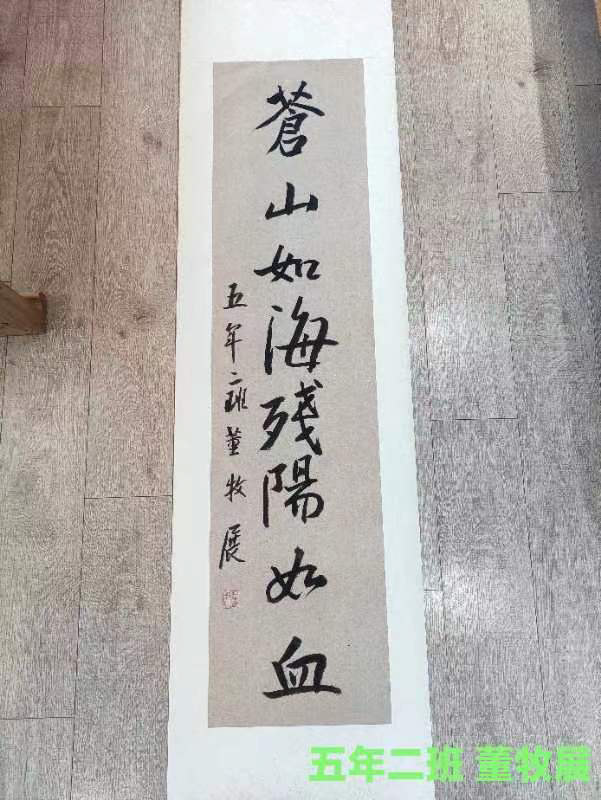 蒼山如海残陽如血
五年二班董牧展
五年二班 董牧展